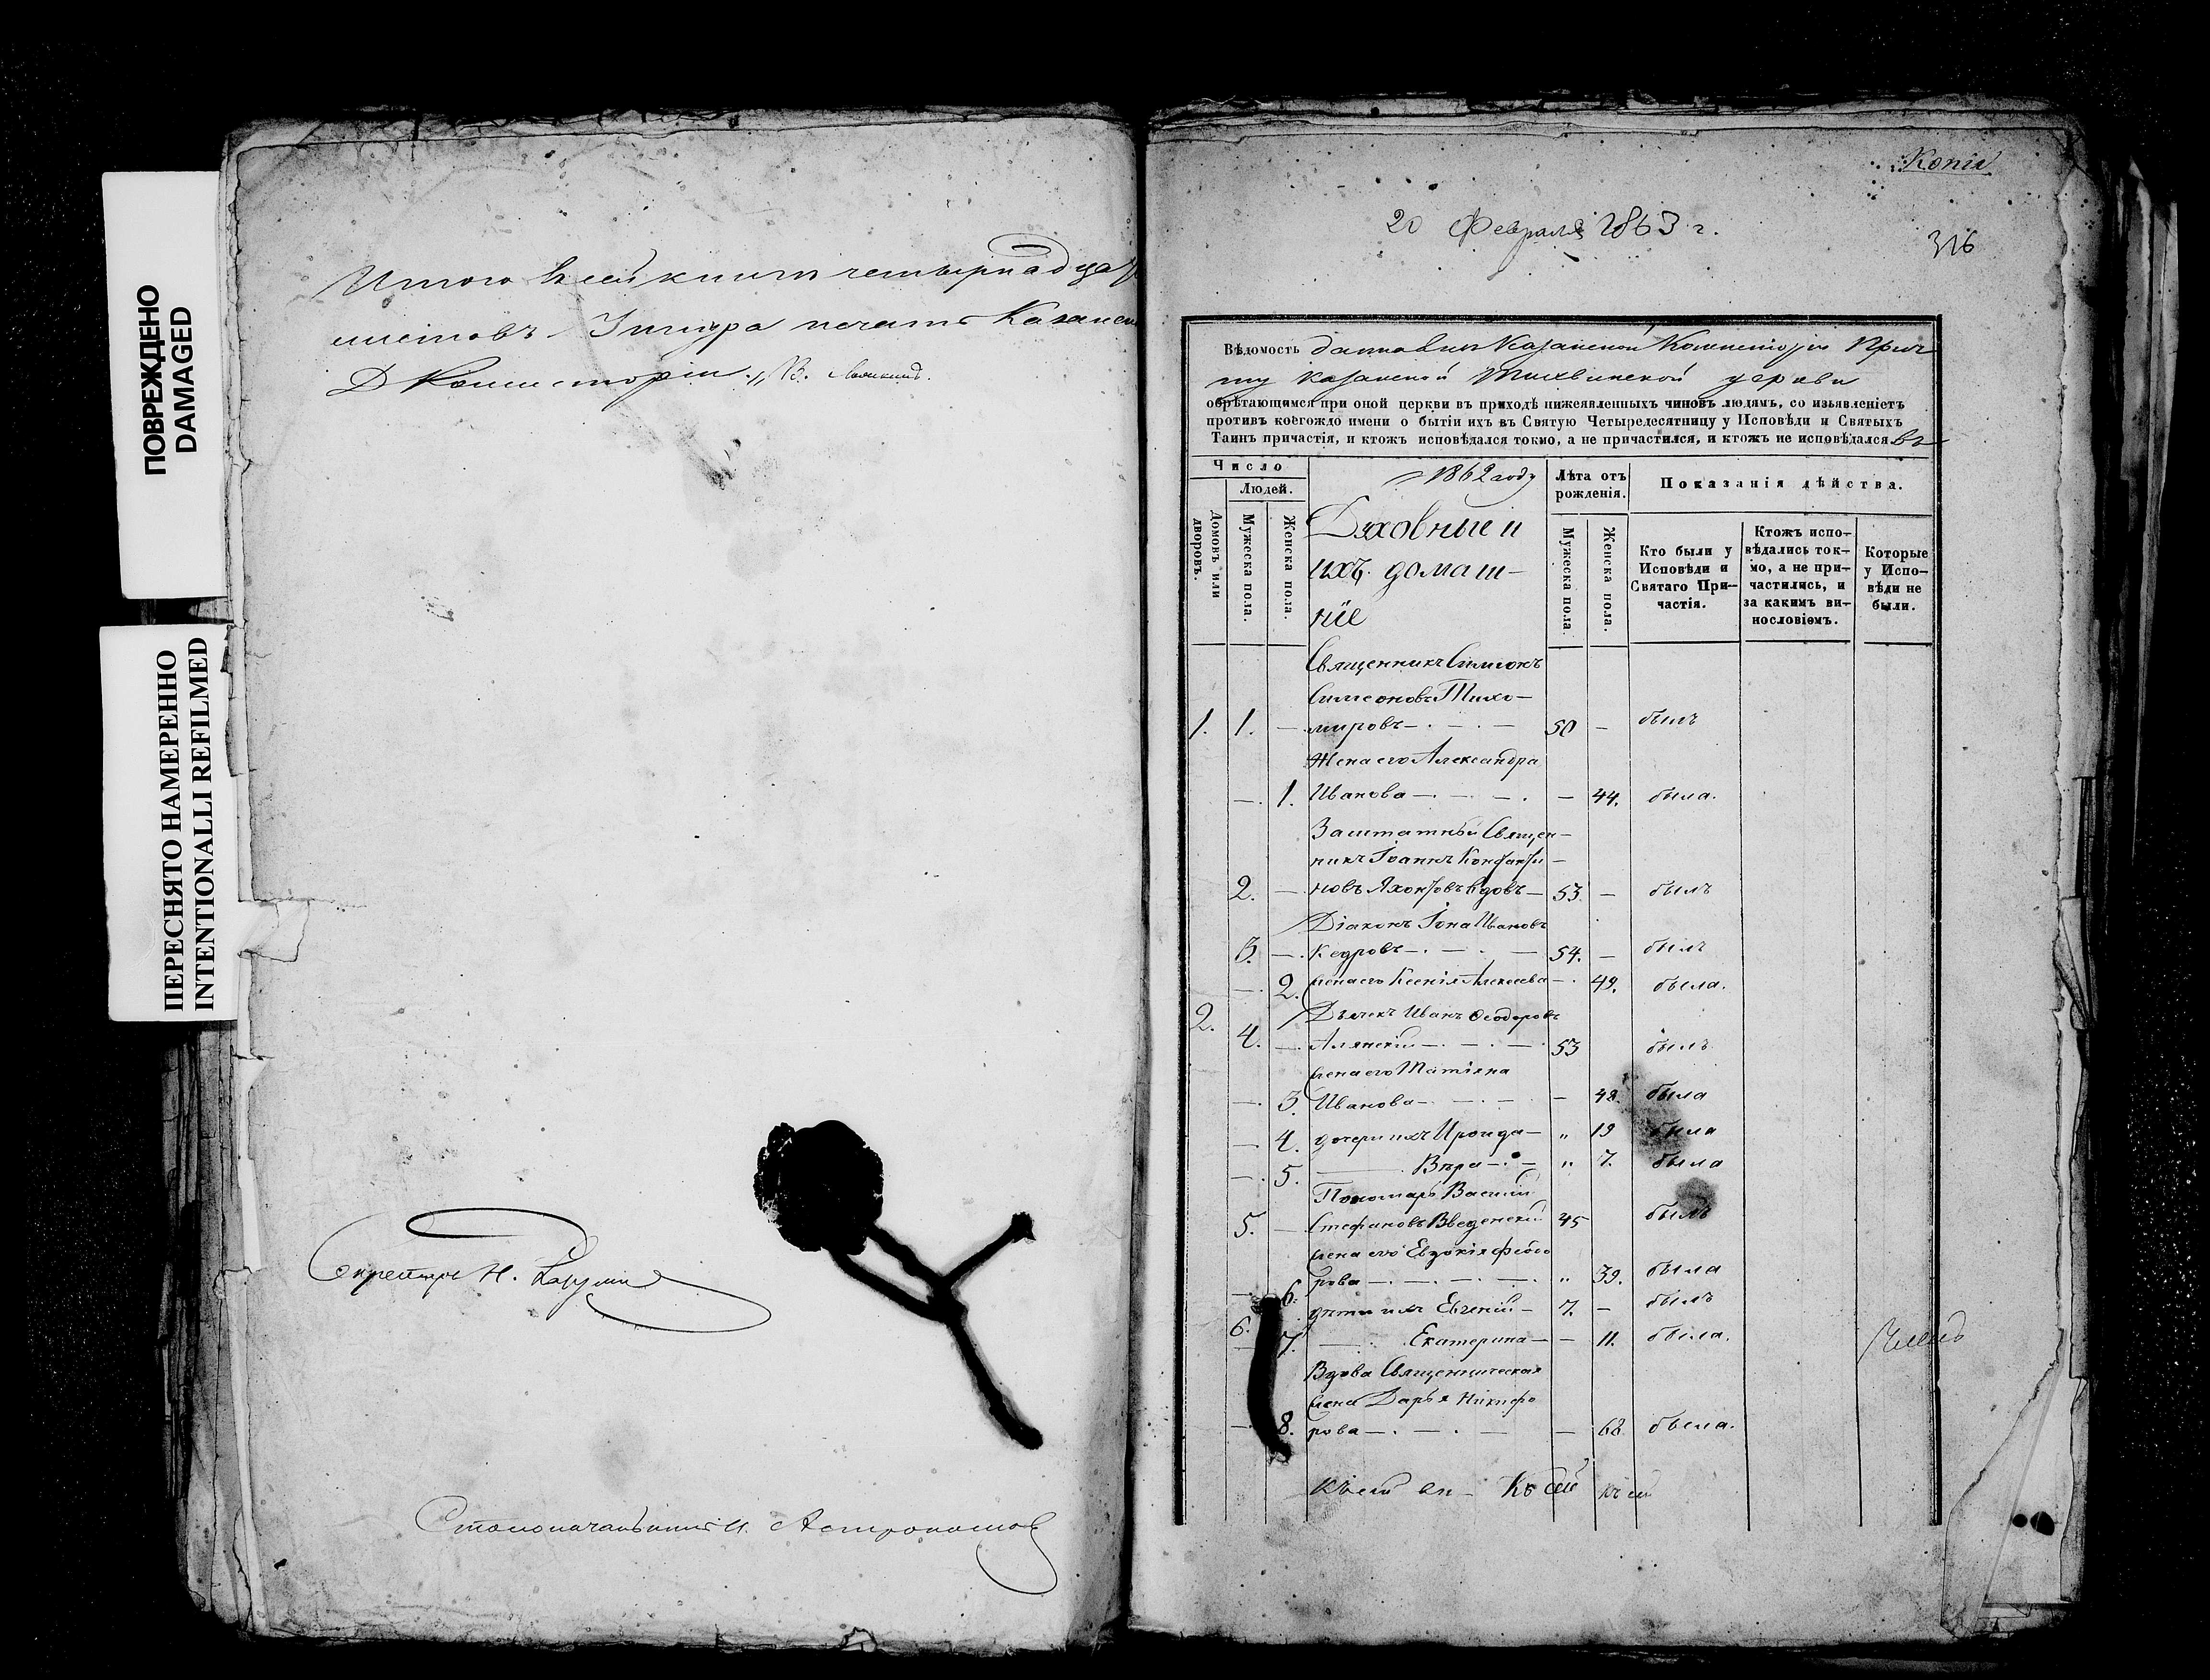 ПОВРЕЖДЕНО
DAMAGED
ПЕРЕСНЯТО НАМЕРЕННО
INTENTIONALLI REFILMED
Итого в сей книге четырнадца
листовъ. Казанск
Д Консисторіи
Секретарь Н.
Столоначальникъ И. Астрономов
Копія
20 Февраля 1863 г.
316
Вѣдомость Казанской Консисторіи Прич
ту Казанской Тихвинской церкви
обрѣтающимся при оной церкви въ приходѣ нижеявленныхъ чиновъ людямъ, со изъявленіетъ
противъ коегождо имени о бытіи ихъ въ Святую Четыредесятницу у Исповѣди и Святыхъ
Таинъ причастія, и ктожъ исповѣдался токмо, а не причастился, и ктожъ не исповѣдался въ
Число
Людей.
Домовъ или дворовъ.
Мужеска пола.
Женска пола.
1862 году
Духовные и
ихъ домаш-
ніе
Лѣта отъ рожденія.
Мужеска пола.
Женска пола.
Показанія дѣйства.
Кто были у Исповѣди и Святаго При-частія.
Ктожъ испо-вѣдались ток-мо, а не при-частились, и за какимъ ви-нословіемъ.
Которые у Испо-вѣди не были.
Священникъ Симеонъ
Симеоновъ Тихо-
1. 1. — мировъ — 50 — былъ
Жена его Александра
— 1. Иванова — — 44. была.
Заштатный Священ-
никъ Іоаннъ Константи-
2. — новъ Яхонтовъ вдовъ — 53. — былъ
Діаконъ Іона Ивановъ
3. — Кедровъ — 54. — былъ
— 2. жена его Ксенія Алексеева — 49. была.
2. Дьячекъ Иванъ Ѳеодоровъ
4. — Алянскій — 53 былъ
жена его Татіяна
— 3. Иванова — — 48. была
— 4. дочери ихъ Ироида — „ 19 была
— 5. — Вѣра — „ 7. была
Пономарь Василій
5. — Стефановъ Введенскій 45 былъ
жена его Евдокія Федо
— 6. рова — „ 39. была
6. дѣти ихъ Евгеній — 7. — былъ
— 7. — Екатерина — — 11. была.
Вдова Священническая
жена Дарья Никифо
— 8. рова — — 68. была.
Къ сей